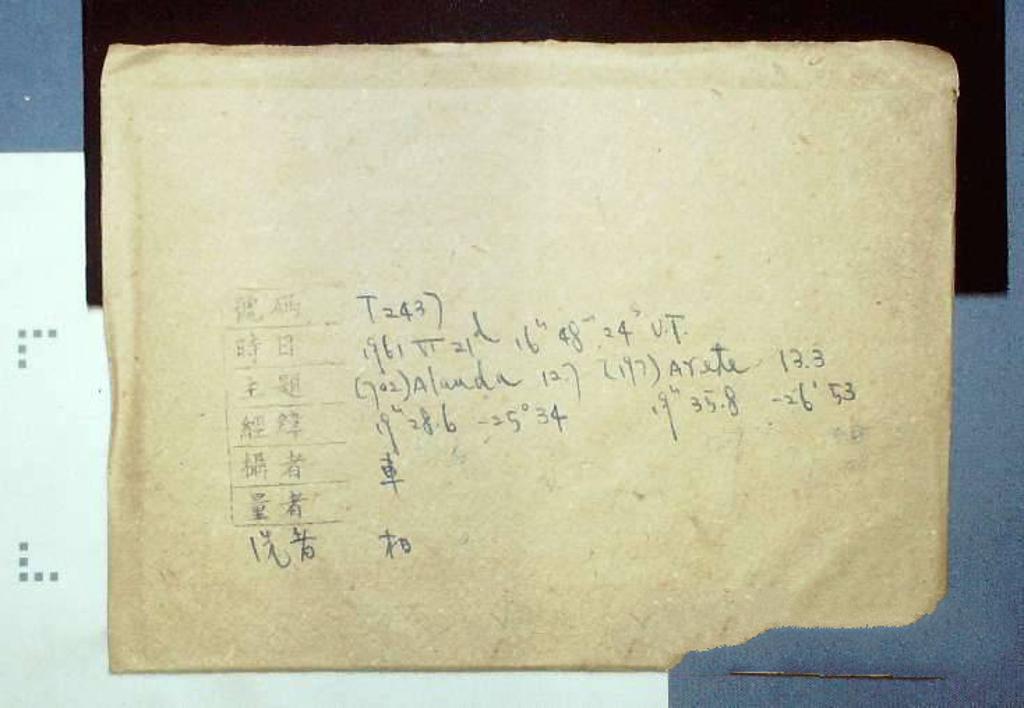 號碼 T2437
時日 1961 VI 21ᵈ 16ʰ 48ᵐ 24ˢ U.T.
主題 (702) Alauda 12.7 (197) Arete 13.3
經緯 19ʰ 28.6 -25° 34 19ʰ 35.8 -26° 53
攝者 車
量者
洗者 相